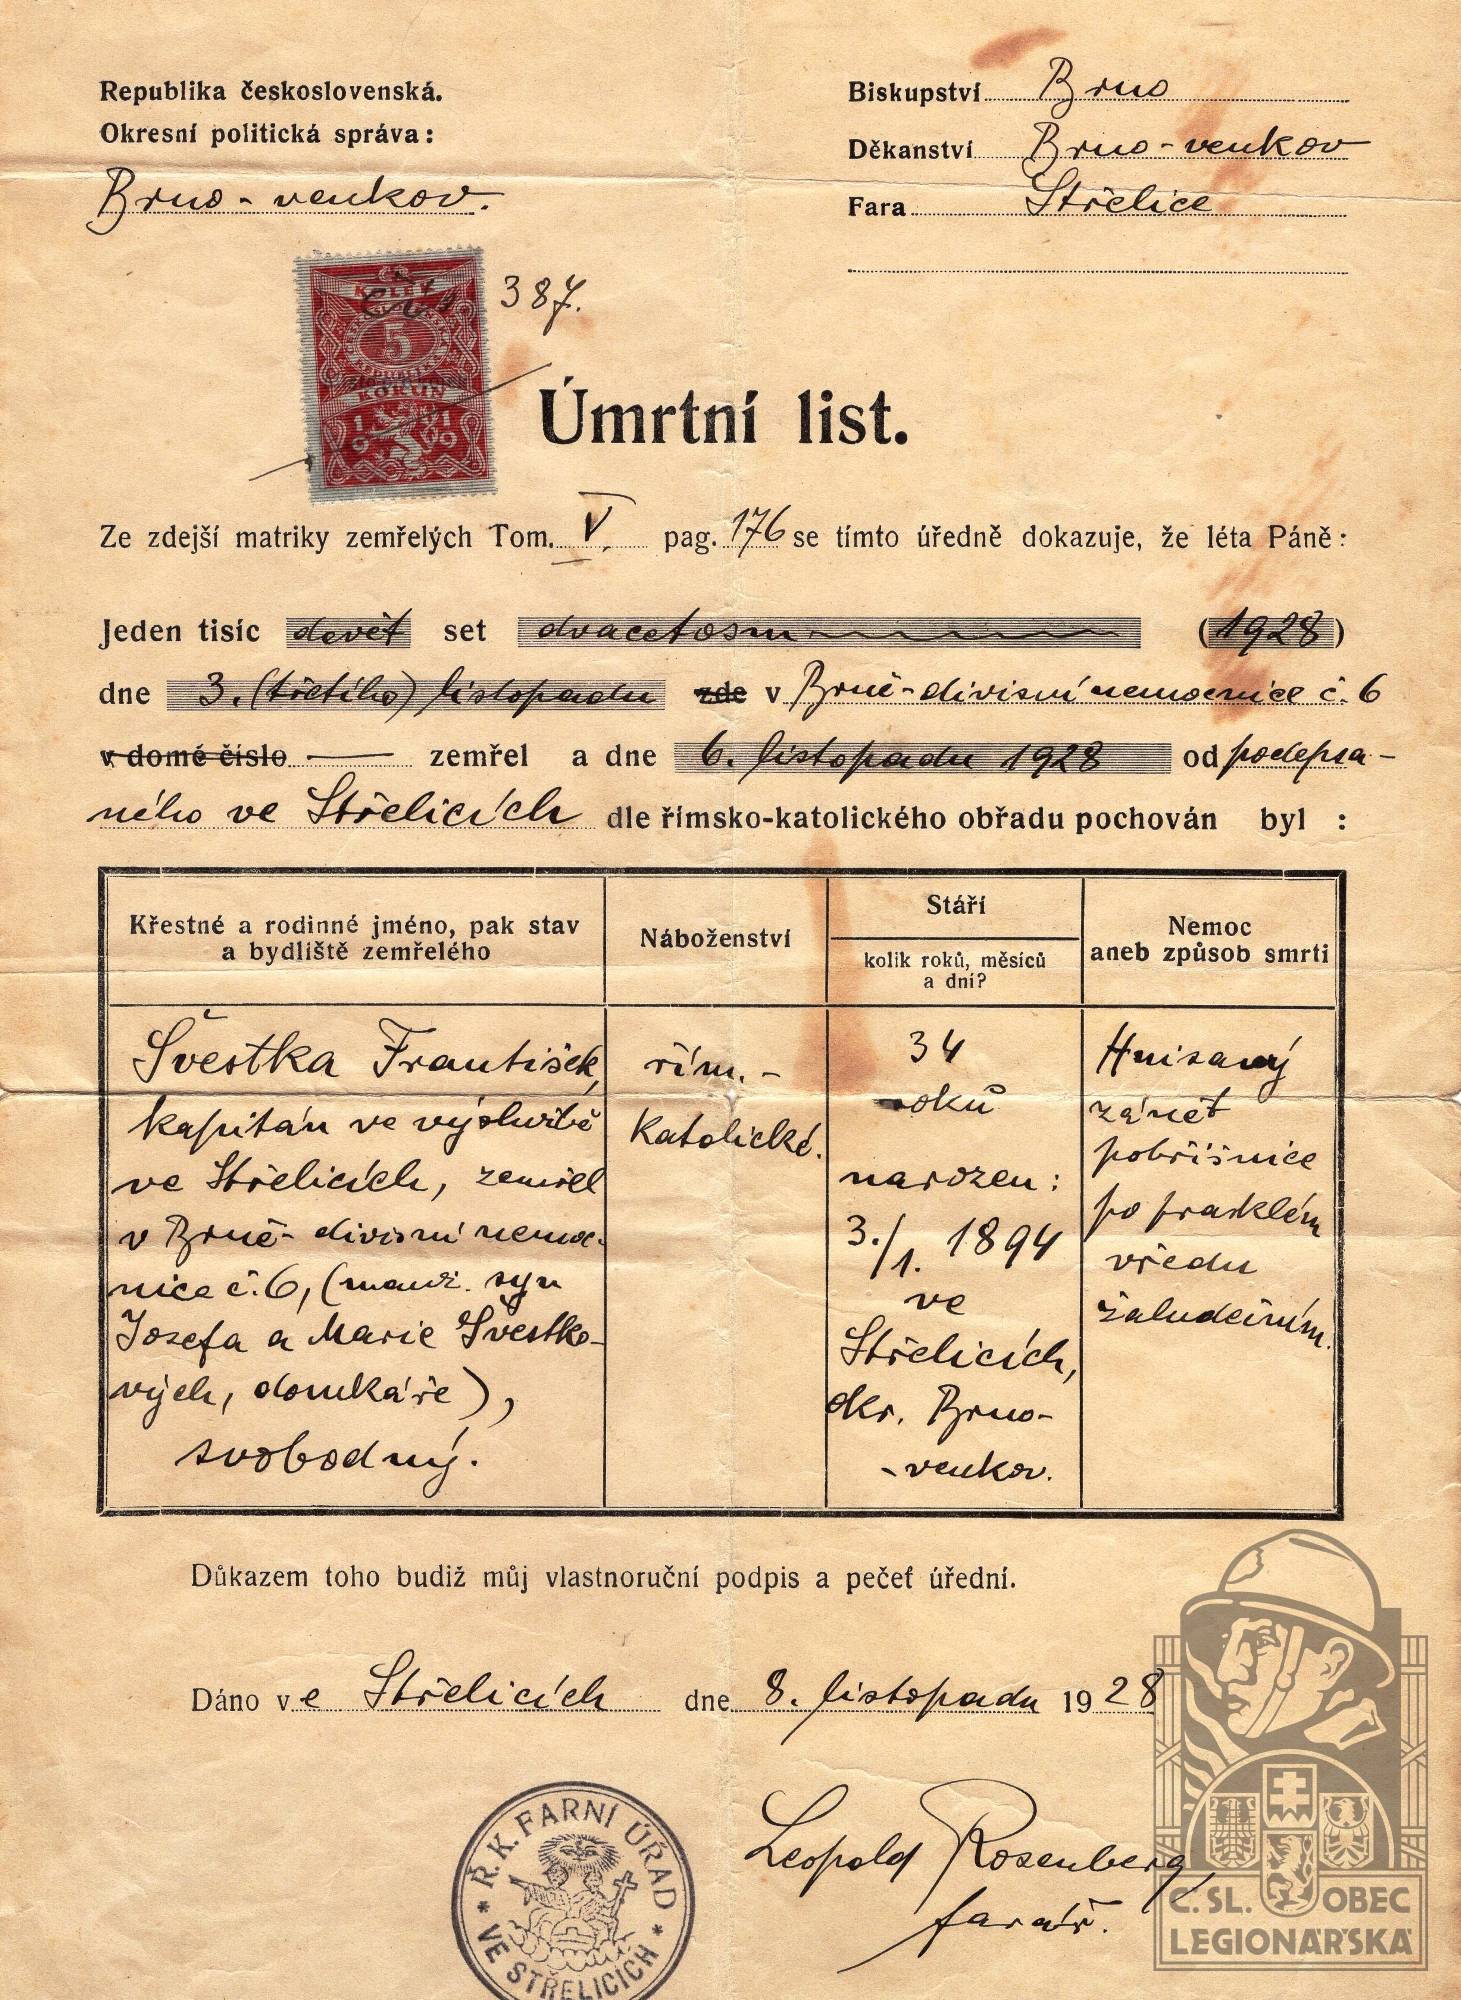 Republika československá.
Okresní politická správa:
Brno-venkov.
Biskupství Brno
Děkanství Brno-venkov
Fara Střelice
KOLEK
5
KORUN
1919
387.
Úmrtní list.
Ze zdejší matriky zemřelých Tom. V. pag. 176 se tímto úředně dokazuje, že léta Páně:
Jeden tisíc devět set dvacetosm (1928)
dne 3. (třetího) listopadu zde v Brně-divisní nemocnice č. 6
v domě číslo — zemřel a dne 6. listopadu 1928 od podepsa-
ného ve Střelicích dle římsko-katolického obřadu pochován byl :
Křestné a rodinné jméno, pak stav
a bydliště zemřelého
Náboženství
Stáří
kolik roků, měsíců
a dní?
Nemoc
aneb způsob smrti
Švestka František,
kapitán ve výslužbě
ve Střelicích, zemřel
v Brně-divisní nemoc-
nice č. 6, (manž. syn
Josefa a Marie Švestko-
vých, domkáře),
svobodný.
řím.-
katolické.
34
roků
narozen:
3./1. 1894
ve
Střelicích,
okr. Brno-
-venkov.
Hnisavý
zánět
pobřišnice
po prasklém
vředu
žaludečním.
Důkazem toho budiž můj vlastnoruční podpis a pečeť úřední.
Dáno ve Střelicích dne 8. listopadu 1928
Leopold Rosenberg,
farář.
Ř. K. FARNÍ ÚŘAD
* VE STŘELICÍCH *
Č. SL. OBEC
LEGIONÁŘSKÁ